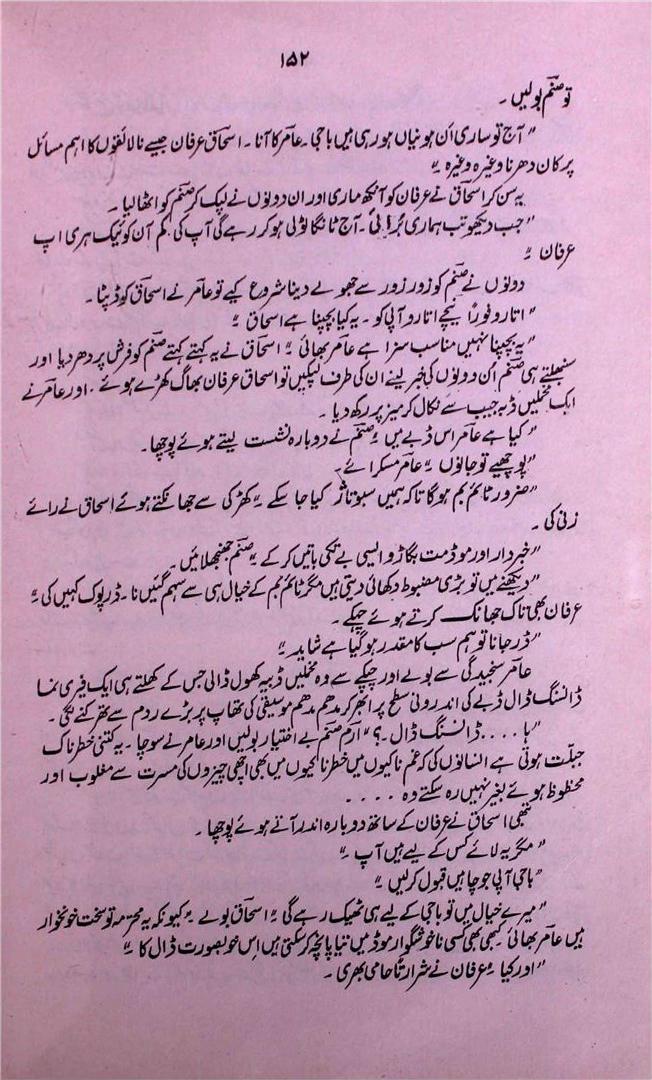 ۱۵۲
تو صنم بولیں۔
"آج تو ساری اَن ہونیاں ہو رہی ہیں باجی۔ عامر کا آنا۔ اسحاق عرفان جیسے نالائقوں کا اہم مسائل
پر کان دھرنا وغیرہ وغیرہ"
یہ سن کر اسحاق نے عرفان کو آنکھ ماری اور ان دونوں نے لپک کر صنم کو اٹھا لیا۔
"جب دیکھو تب ہماری برائی۔ آج ٹانگا ٹولی ہو کر رہے گی آپ کی کم آن کوئیک ہری اپ
عرفان"
دونوں نے صنم کو زور زور سے جھولے دینا شروع کیے تو عامر نے اسحاق کو ڈپٹا۔
"اتارو فوراً نیچے اتارو آپی کو۔ یہ کیا بچپنا ہے اسحاق"
"یہ بچپنا نہیں مناسب سزا ہے عامر بھائی" اسحاق نے یہ کہتے کہتے صنم کو فرش پر دھر دیا اور
سنبھلتے ہی صنم اُن دونوں کی خبر لینے ان کی طرف لپکیں تو اسحاق عرفان بھاگ کھڑے ہوئے۔ اور عامر نے
ایک مخملیں ڈبہ جیب سے نکال کر میز پر رکھ دیا۔
"کیا ہے عامر اس ڈبے میں" صنم نے دوبارہ نشست لیتے ہوئے پوچھا۔
"بوجھیے تو جانوں" عامر مسکرائے۔
"ضرور ٹائم بم ہوگا تاکہ ہمیں سبوتاژ کیا جا سکے" کھڑکی سے جھانکتے ہوئے اسحاق نے رائے
زنی کی۔
"خبردار اور موڈ مت بگاڑو ایسی بے تکی باتیں کر کے" صنم جھنجھلائیں۔
"دیکھنے میں تو بڑی مضبوط دکھائی دیتی ہیں مگر ٹائم بم کے خیال ہی سے سہم گئیں نا۔ ڈرپوک کہیں کی"
عرفان بھی تاک جھانک کرتے ہوئے چہکے۔
"ڈر جانا تو ہم سب کا مقدر ہو گیا ہے شاید"
عامر سنجیدگی سے بولے اور چپکے سے وہ مخملیں ڈبیہ کھول ڈالی جس کے کھلتے ہی ایک فیری نما
ڈانسنگ ڈال ڈبے کی اندرونی سطح پر ابھر کر مدھم مدھم موسیقی کی تھاپ پر بڑے ردم سے تھرکنے لگی۔
"ہا .... ڈانسنگ ڈال۔؟" ارم صنم بے اختیار بولیں اور عامر نے سوچا۔ یہ کتنی خطرناک
جبلّت ہوتی ہے انسانوں کی کہ غم ناکیوں میں خطرناکیوں میں بھی اچھی چیزوں کی مسرت سے مغلوب اور
محظوظ ہوئے بغیر نہیں رہ سکتے وہ ....
تبھی اسحاق نے عرفان کے ساتھ دوبارہ اندر آتے ہوئے پوچھا۔
"مگر یہ لائے کس کے لیے ہیں آپ"
"باجی آپی جو چاہیں قبول کر لیں"
"میرے خیال میں تو باجی کے لیے ہی ٹھیک رہے گی" اسحاق بولے "کیونکہ یہ محترمہ تو سخت خونخوار
ہیں عامر بھائی کبھی بھی کسی ناخوشگوار موڈ میں تیا پانچہ کر سکتی ہیں اس خوبصورت ڈال کا"
"اور کیا" عرفان نے شرارتاً حامی بھری۔